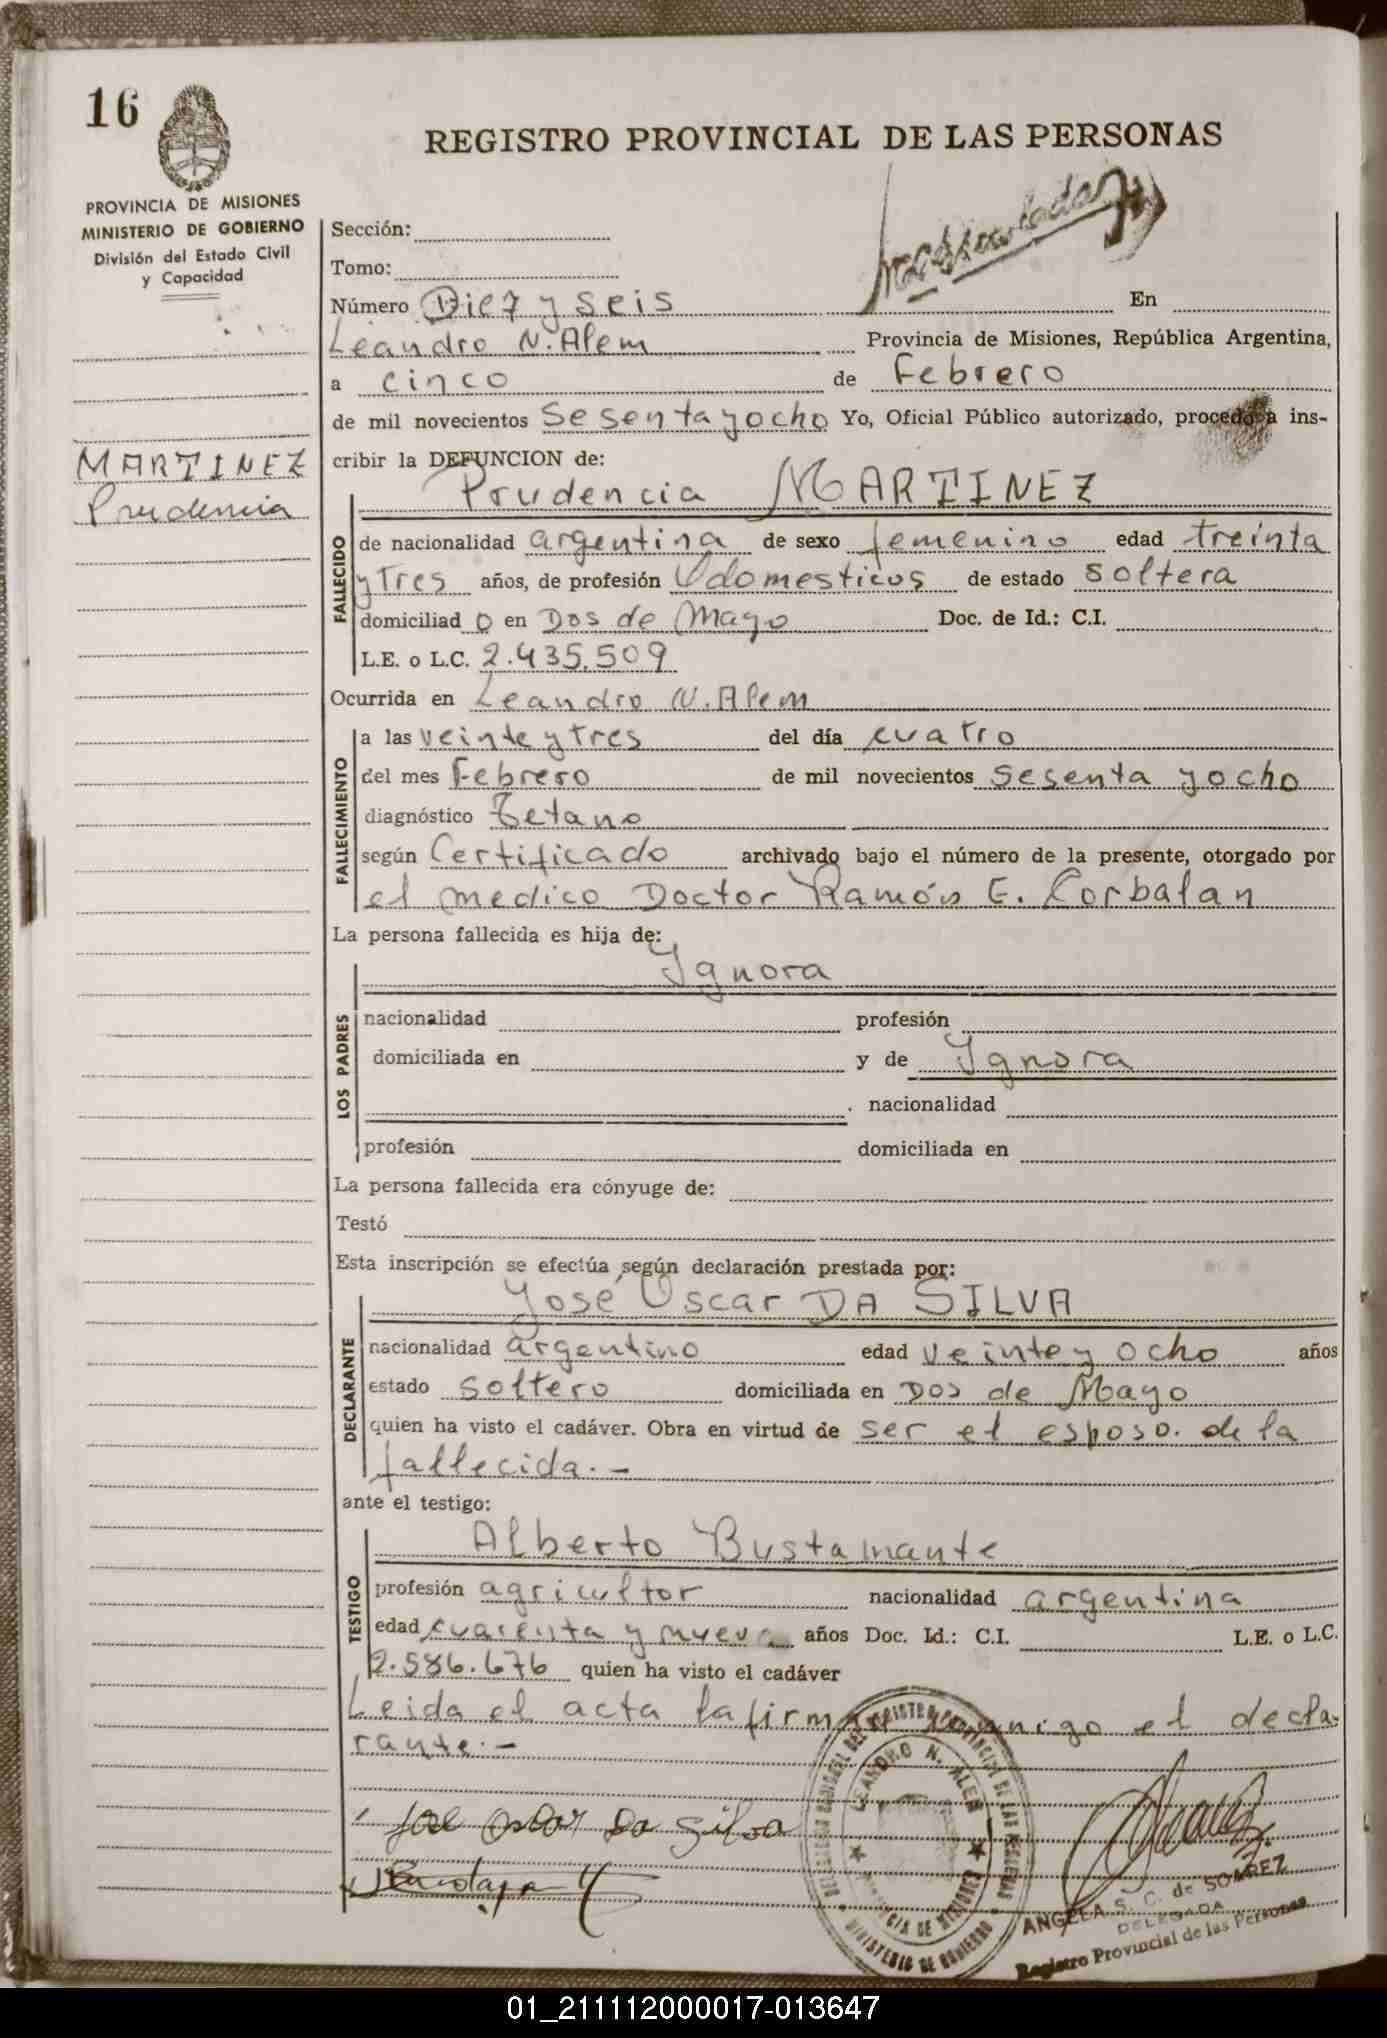 16
REGISTRO PROVINCIAL DE LAS PERSONAS
PROVINCIA DE MISIONES
MINISTERIO DE GOBIERNO
División del Estado Civil
y Capacidad
Sección:
Tomo:
Número Diez y seis En
Leandro N. Alem Provincia de Misiones, República Argentina,
a cinco de Febrero
de mil novecientos Sesenta y ocho Yo, Oficial Público autorizado, procedo a ins-
cribir la DEFUNCION de:
MARTINEZ
Prudencia
Prudencia MARTINEZ
FALLECIDO
de nacionalidad argentina de sexo femenino edad treinta
y tres años, de profesión domesticos de estado soltera
domiciliad o en Dos de Mayo Doc. de Id.: C.I.
L.E. o L.C. 2.435.509
Ocurrida en Leandro N. Alem
FALLECIMIENTO
a las veinte y tres del día cuatro
del mes Febrero de mil novecientos sesenta y ocho
diagnóstico Tetano
según Certificado archivado bajo el número de la presente, otorgado por
el medico Doctor Ramón E. Corbalan
La persona fallecida es hija de:
Ignora
LOS PADRES
nacionalidad profesión
domiciliada en y de Ignora
. nacionalidad
profesión domiciliada en
La persona fallecida era cónyuge de:
Testó
Esta inscripción se efectúa según declaración prestada por:
José Oscar DA SILVA
DECLARANTE
nacionalidad argentino edad veinte y ocho años
estado soltero domiciliada en Dos de Mayo
quien ha visto el cadáver. Obra en virtud de ser el esposo de la
fallecida.-
ante el testigo:
Alberto Bustamante
TESTIGO
profesión agricultor nacionalidad argentina
edad cuarenta y nueve años Doc. Id.: C.I. L.E. o L.C.
2.586.676 quien ha visto el cadáver
Leida el acta la firma conmigo el decla-
rante.-
José Oscar Da Silva
LEANDRO N. ALEM
PROVINCIA DE MISIONES
MINISTERIO DE GOBIERNO
ANGELA S. C. de SOAREZ
DELEGADA
Registro Provincial de las Personas
01_211112000017-013647